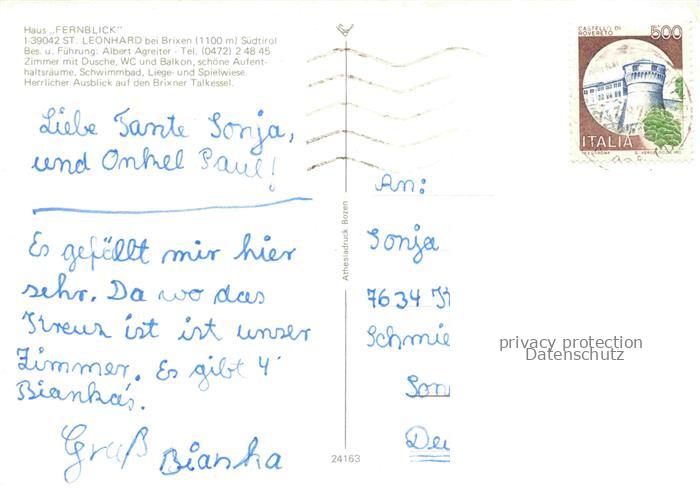 Haus „FERNBLICK"
I-39042 ST. LEONHARD bei Brixen (1100 m) Südtirol
Bes. u. Führung: Albert Agreiter - Tel. (0472) 2 48 45
Zimmer mit Dusche, WC und Balkon, schöne Aufent-
haltsräume, Schwimmbad, Liege- und Spielwiese.
Herrlicher Ausblick auf den Brixner Talkessel.
Liebe Tante Sonja,
und Onkel Paul!
Es gefällt mir hier
sehr. Da wo das
Kreuz ist ist unser
Zimmer. Es gibt 4
Bianka's.
Gruß Bianka
Athesiadruck Bozen
24163
CASTELLO DI
ROVERETO
500
ITALIA
An:
Sonja
7634
Schmie
Son
Deu
privacy protection
Datenschutz